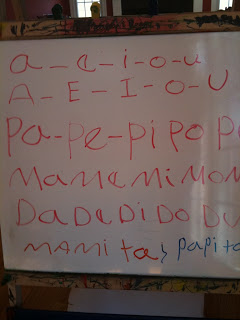 a-e-i-o-u
A-E-I-O-U
Pa-pe-pi po p
MaMeMiMoM
DaDeDiDoDu
MAMi tas papito